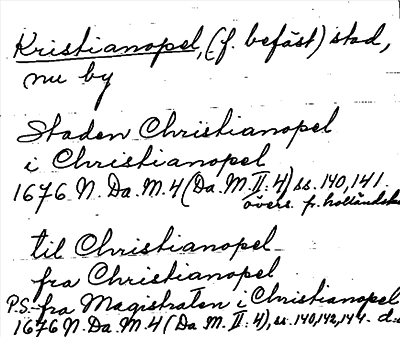 Kristianopel, (f. befäst) stad,
nu by
Staden Christianopel
i Christianopel
1676 N. Da. M. 4 (Da. M. II: 4) ss. 140, 141.
övers. fr. holländska
til Christianopel
fra Christianopel
P.S. fra Magistraten i Christianopel
1676 N. Da. M. 4 (Da. M. II: 4), ss. 140, 142, 144. d.